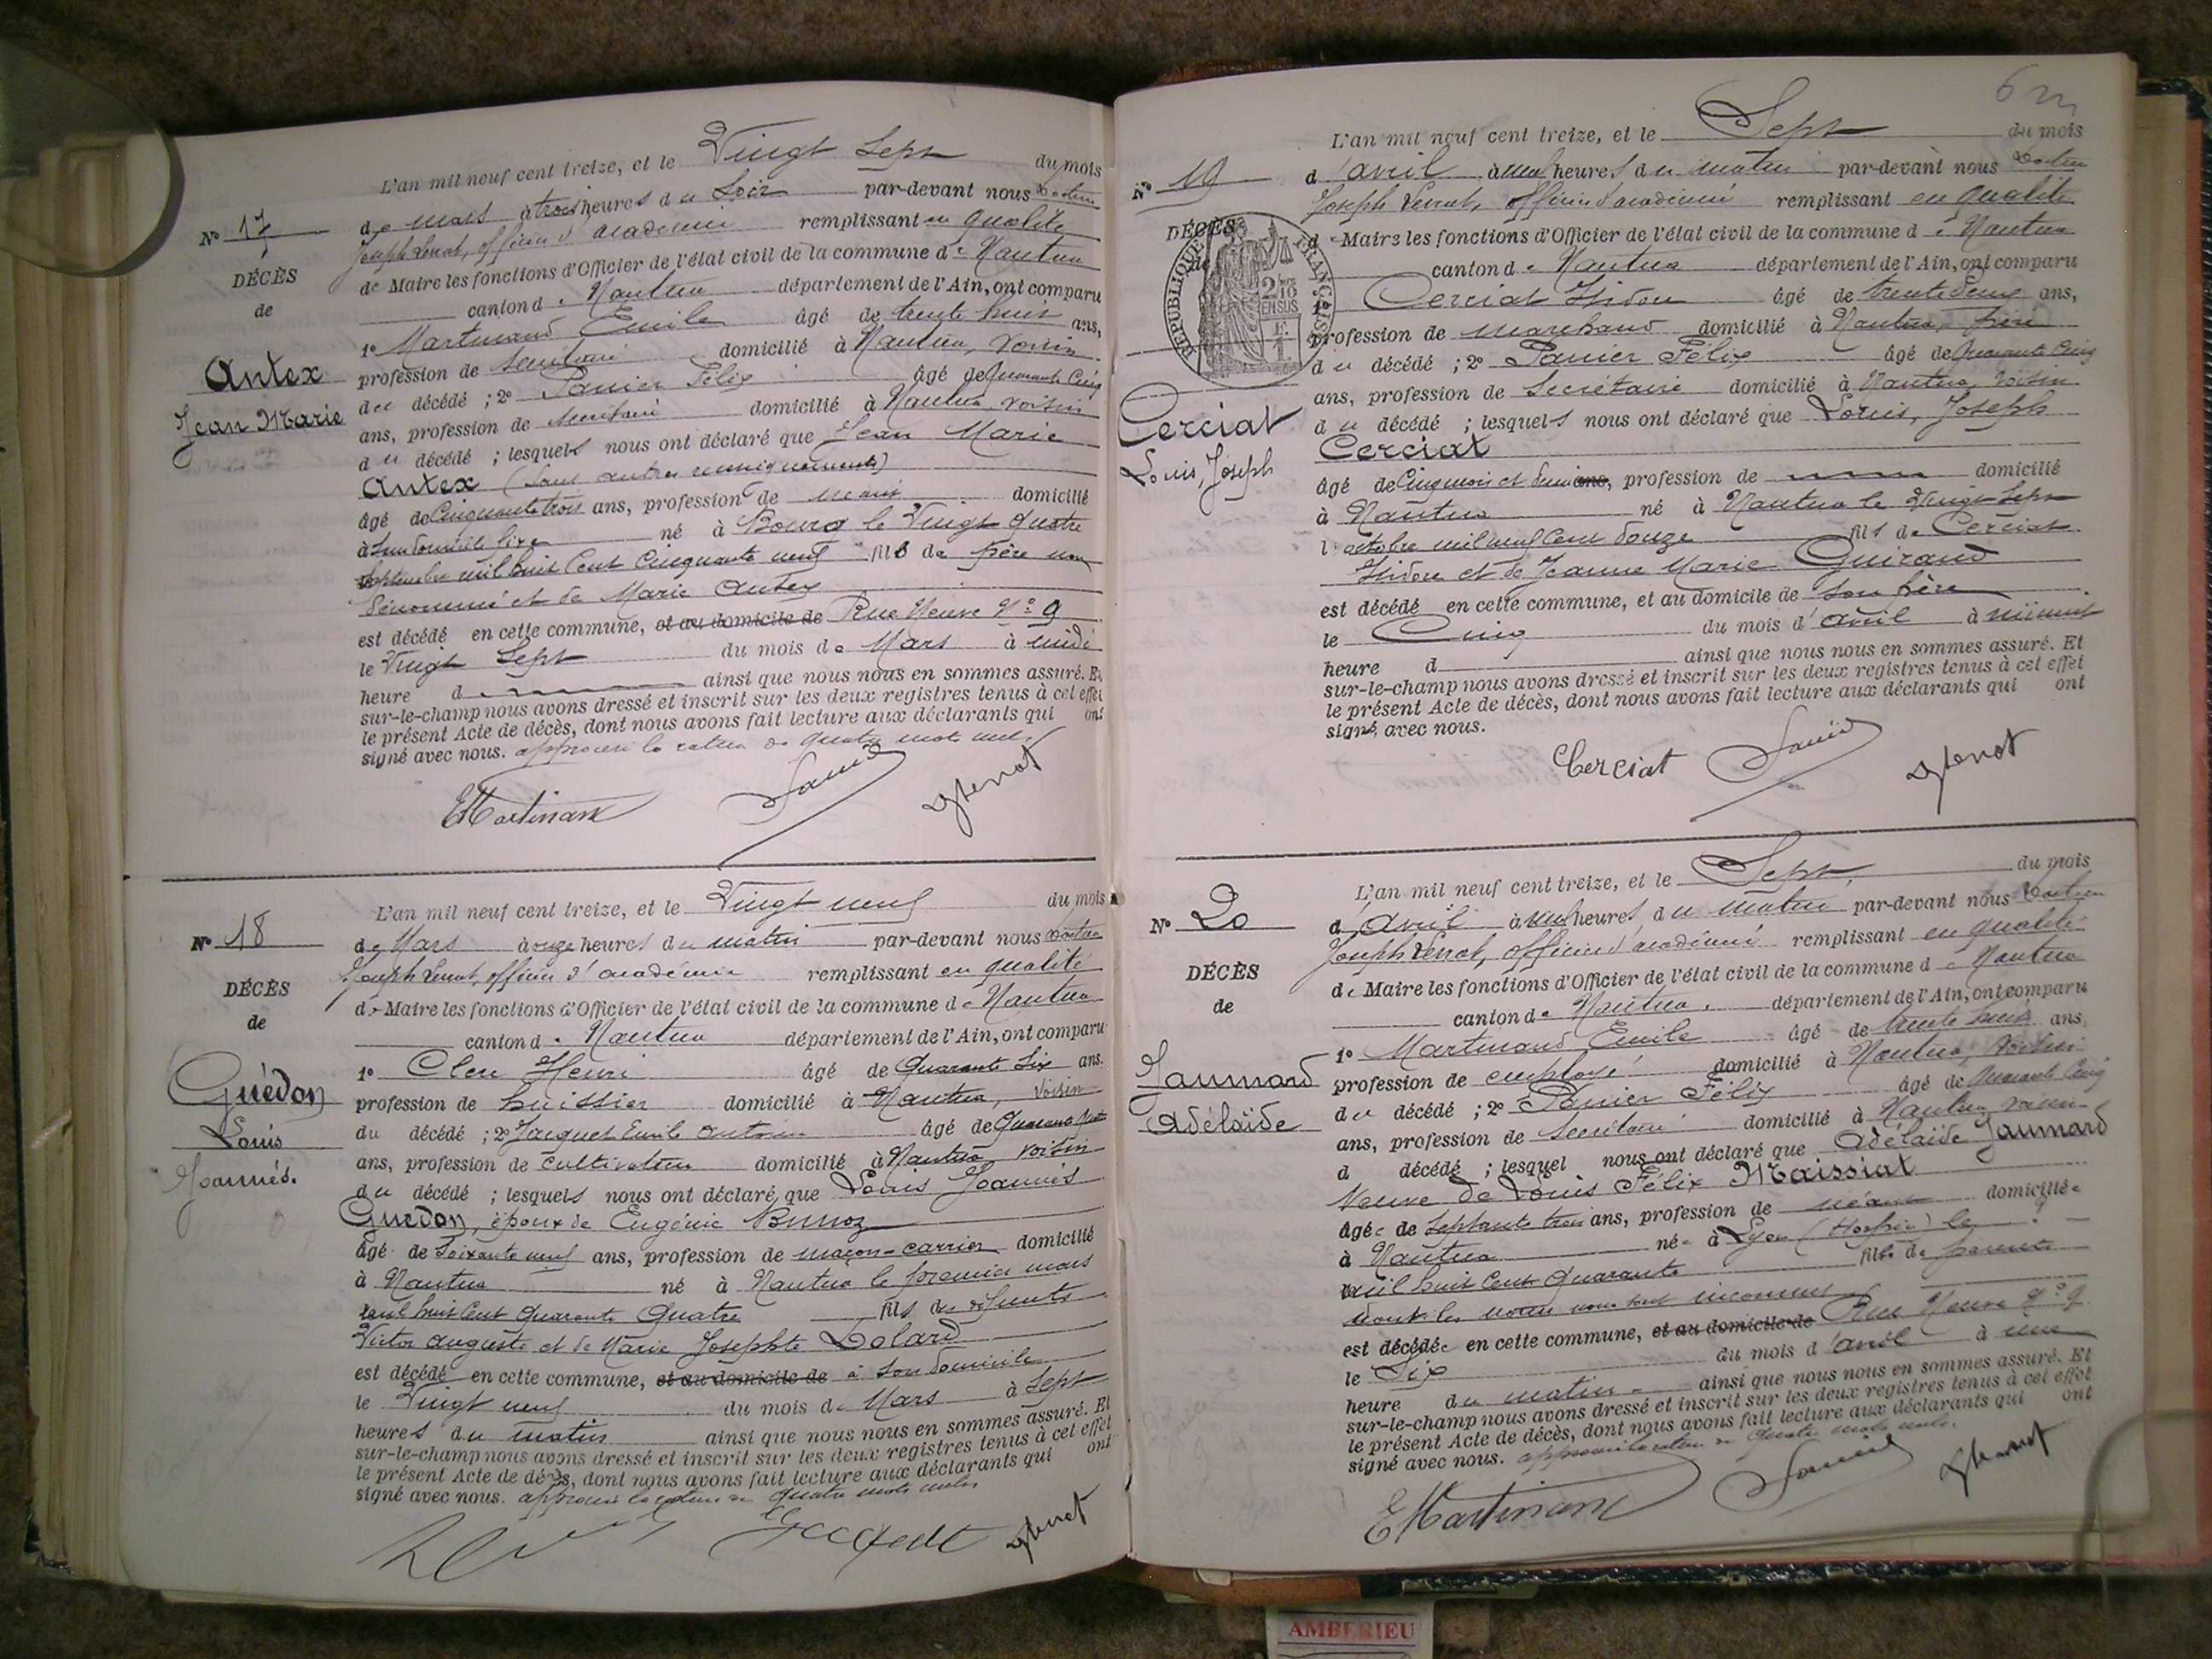 L'an mil neuf cent treize, et le Vingt Sept du mois
de mars à trois heures du Soir par-devant nous Docteur
Joseph officier d'académie remplissant en qualité
de Maire les fonctions d'Officier de l'état civil de la commune de Nantua
canton de Nantua département de l'Ain, ont comparu
1° Martinand Emile âgé de trente huit ans,
profession de domicilié à Nantua, voisin
du décédé ; 2° Panier Félix âgé de Quarante Cinq
ans, profession de Secrétaire domicilié à Nantua, voisin
du décédé ; lesquels nous ont déclaré que Jean Marie
Antex (Sans autres renseignements)
âgé de Cinquante trois ans, profession de domicilié
à Sans domicile fixe né à Bourg le Vingt Quatre
Septembre mil huit Cent Cinquante neuf fils de père non
dénommé et de Marie Antex
est décédé en cette commune, et au domicile de Rue Neuve N° 9
le Vingt Sept du mois de Mars à midi
heure d ainsi que nous nous en sommes assuré. Et
sur-le-champ nous avons dressé et inscrit sur les deux registres tenus à cet effet
le présent Acte de décès, dont nous avons fait lecture aux déclarants qui ont
signé avec nous. approuvé la rature de quatre mots nuls
EMartinand
N° 17
DÉCÈS
de
Antex
Jean Marie
L'an mil neuf cent treize, et le Vingt neuf du mois
de Mars à onze heures du matin par-devant nous Docteur
Joseph officier d'académie remplissant en qualité
de Maire les fonctions d'Officier de l'état civil de la commune de Nantua
canton de Nantua département de l'Ain, ont comparu
1° Clerc Henri âgé de Quarante Six ans.
profession de huissier domicilié à Nantua, Voisin
du décédé ; 2° Jacquet Emile Antoine âgé de Quarante
ans, profession de Cultivateur domicilié à Nantua voisin
du décédé ; lesquels nous ont déclaré que Louis Joannès
Guédon, époux de Eugénie
âgé de Soixante neuf ans, profession de maçon-carrier domicilié
à Nantua né à Nantua le premier mars
mil huit Cent Quarante Quatre fils des défunts
Victor Auguste et de Marie Josephte Dolard
est décédé en cette commune, et au domicile de à Son domicile
le Vingt neuf du mois de Mars à Sept
heures du matin ainsi que nous nous en sommes assuré. Et
sur-le-champ nous avons dressé et inscrit sur les deux registres tenus à cet effet
le présent Acte de décès, dont nous avons fait lecture aux déclarants qui ont
signé avec nous. approuvé la rature de quatre mots nuls
Jacquet
N° 18
DÉCÈS
de
Guédon
Louis
Joannès.
L'an mil neuf cent treize, et le Sept du mois
d'avril à neuf heures du matin par-devant nous Docteur
Joseph officier d'académie remplissant en qualité
de Maire les fonctions d'Officier de l'état civil de la commune de Nantua
canton de Nantua département de l'Ain, ont comparu
1° Cerciat Isidore âgé de trente deux ans,
profession de marchand domicilié à Nantua, père
du décédé ; 2° Panier Félix âgé de Quarante Cinq
ans, profession de Secrétaire domicilié à Nantua, voisin
du décédé ; lesquels nous ont déclaré que Louis, Joseph
Cerciat
âgé de Cinq mois et demi ans, profession de domicilié
à Nantua né à Nantua le Vingt Sept
octobre mil neuf Cent douze fils de Cerciat
Isidore et de Jeanne Marie Guiraud
est décédé en cette commune, et au domicile de Son père
le Cinq du mois d'avril à minuit
heure d ainsi que nous nous en sommes assuré. Et
sur-le-champ nous avons dressé et inscrit sur les deux registres tenus à cet effet
le présent Acte de décès, dont nous avons fait lecture aux déclarants qui ont
signé avec nous.
Cerciat
N° 19
DÉCÈS
de
RÉPUBLIQUE FRANÇAISE
2/10 EN SUS
Cerciat
Louis, Joseph
L'an mil neuf cent treize, et le Sept du mois
d'Avril à neuf heures du matin par-devant nous Docteur
Joseph officier d'académie remplissant en qualité
de Maire les fonctions d'Officier de l'état civil de la commune de Nantua
canton de Nantua département de l'Ain, ont comparu
1° Martinand Emile âgé de trente huit ans,
profession de employé domicilié à Nantua, voisin
du décédé ; 2° Panier Félix âgé de Quarante Cinq
ans, profession de Secrétaire domicilié à Nantua voisin
d décédé ; lesquel nous ont déclaré que Adélaïde Jaumard
Veuve de Louis Félix Maissiat
âgée de Septante trois ans, profession de néant domiciliée
à Nantua née à Lyon (Hospice) le
mil huit Cent Quarante fille de parents
dont les noms nous sont inconnus
est décédée en cette commune, et au domicile de Rue Neuve N° 9
le Six du mois d'avril à une
heure du matin ainsi que nous nous en sommes assuré. Et
sur-le-champ nous avons dressé et inscrit sur les deux registres tenus à cet effet
le présent Acte de décès, dont nous avons fait lecture aux déclarants qui ont
signé avec nous. approuvé la rature de quatre mots nuls.
EMartinand
N° 20
DÉCÈS
de
Jaumard
Adélaïde
AMBERIEU